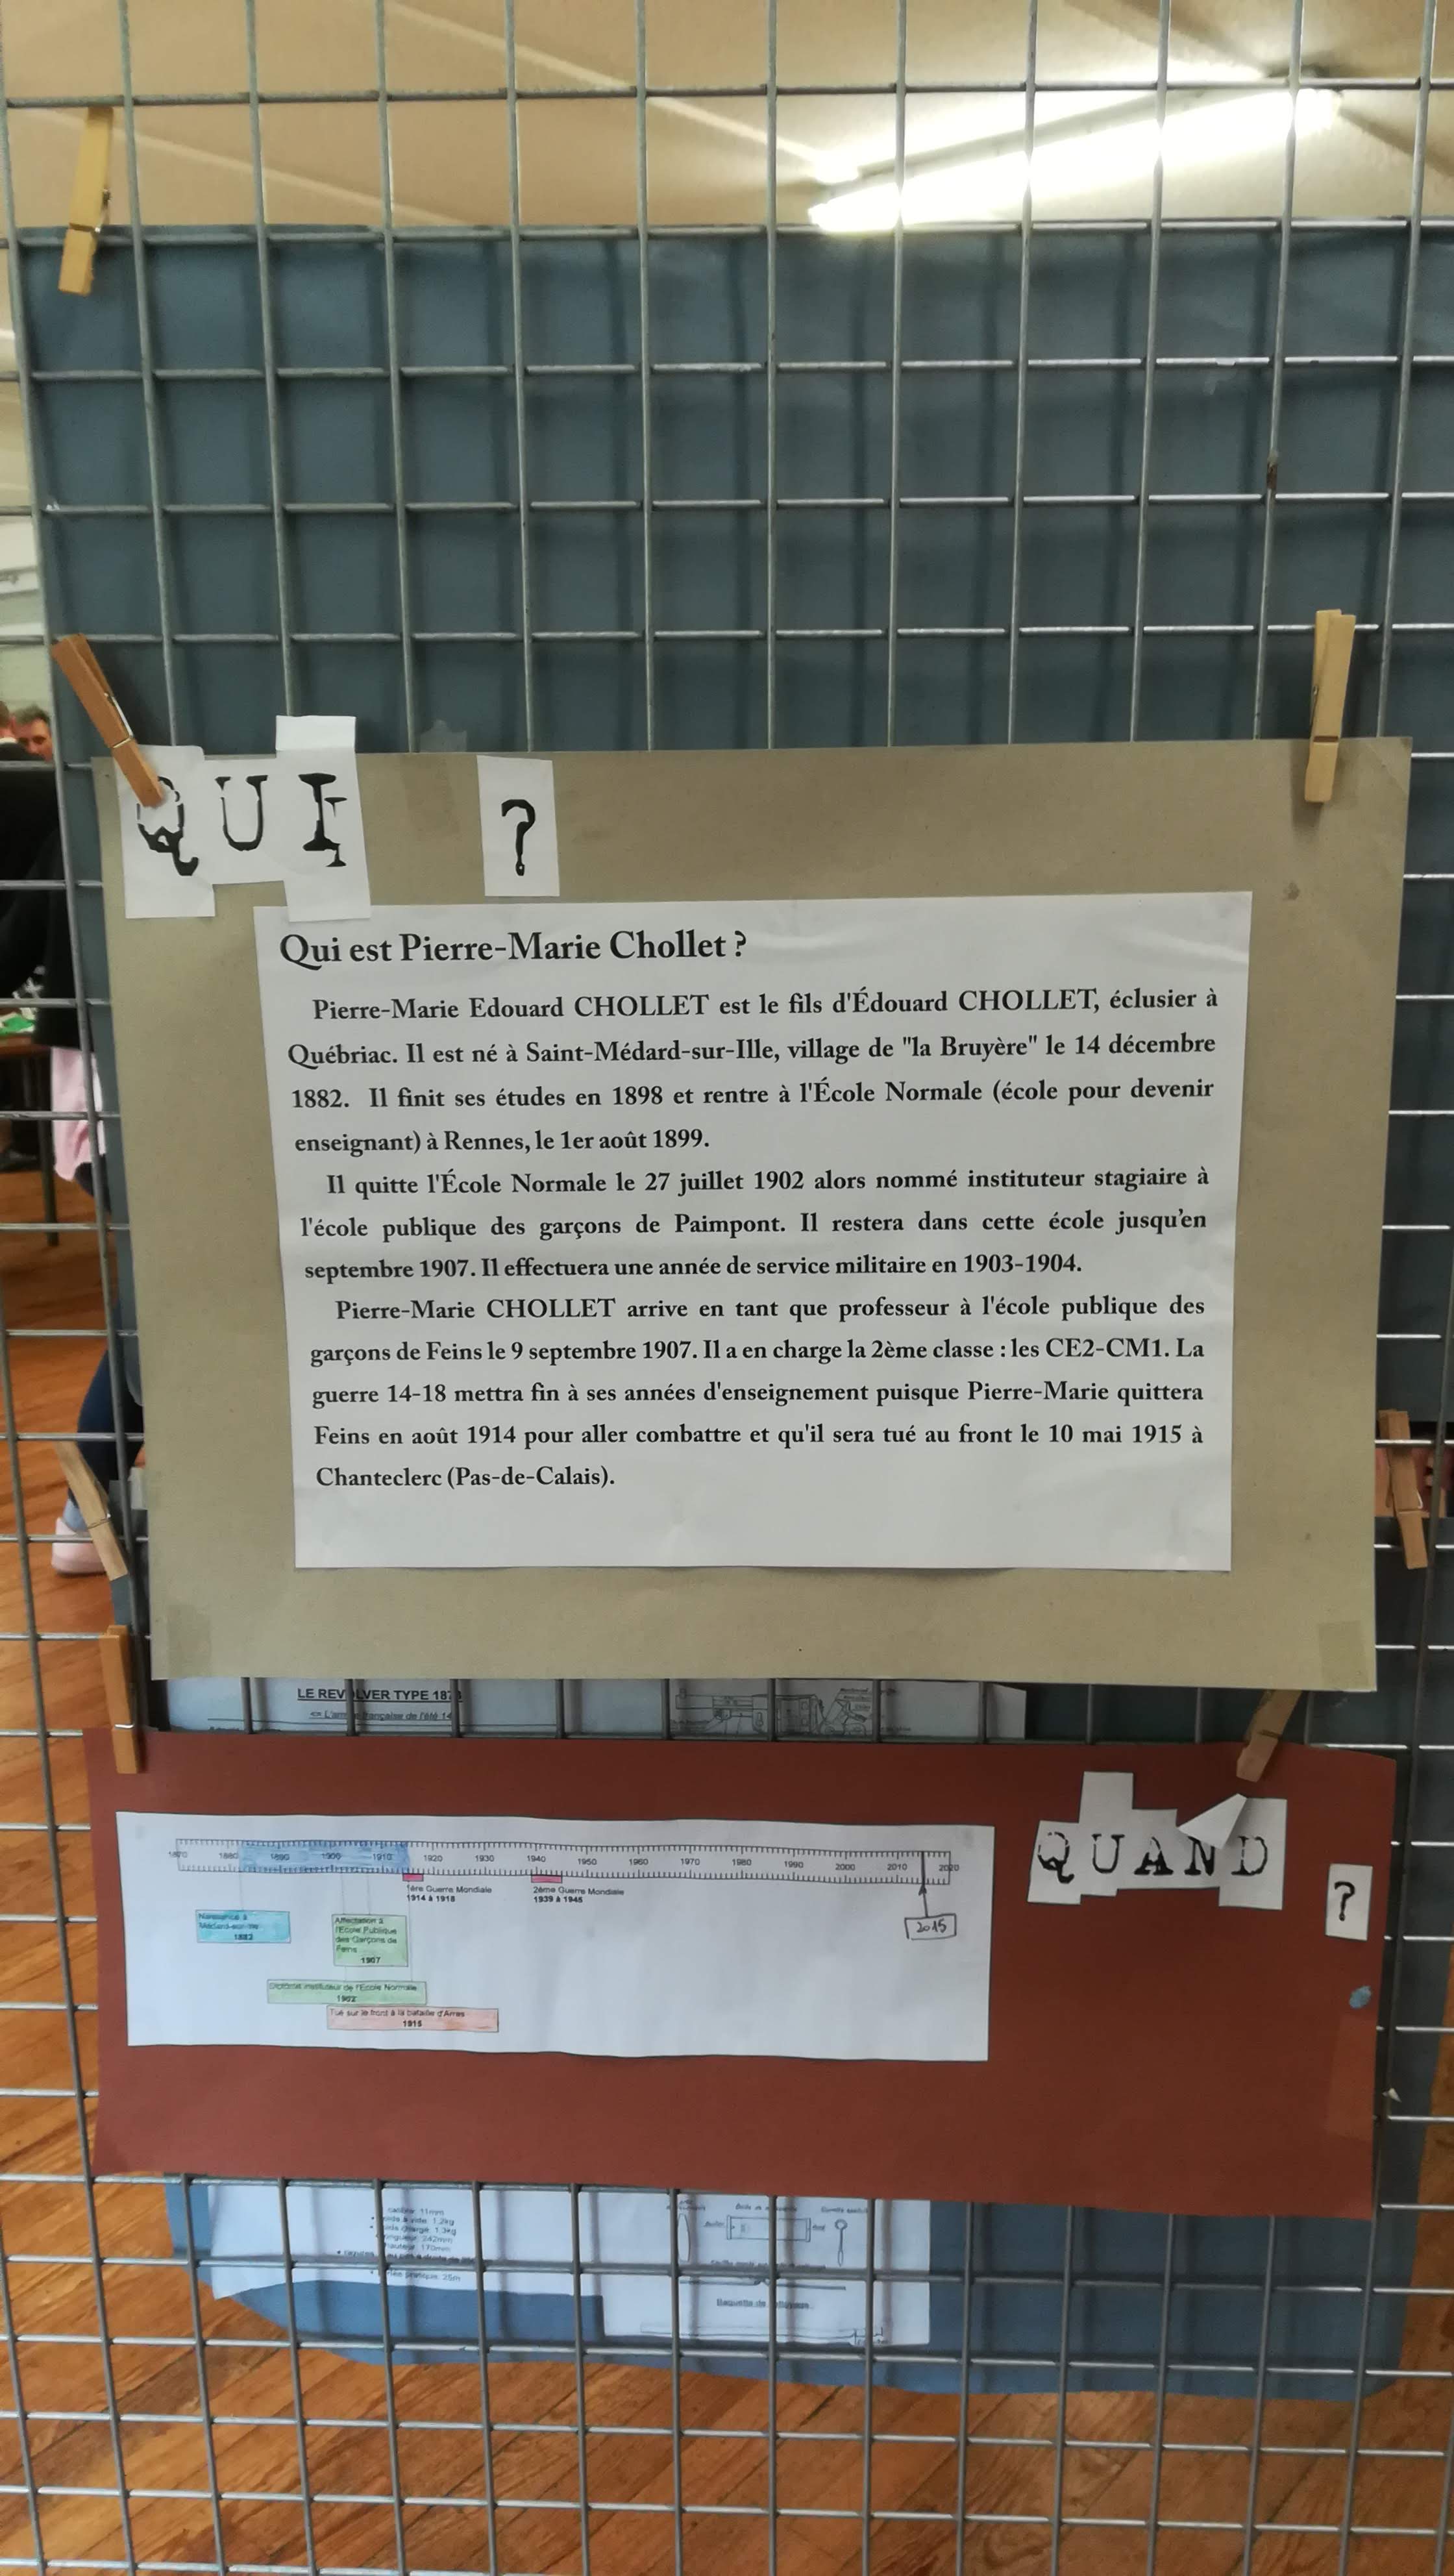 QUI ?
Qui est Pierre-Marie Chollet ?
Pierre-Marie Edouard CHOLLET est le fils d'Édouard CHOLLET, éclusier à
Québriac. Il est né à Saint-Médard-sur-Ille, village de "la Bruyère" le 14 décembre
1882. Il finit ses études en 1898 et rentre à l'École Normale (école pour devenir
enseignant) à Rennes, le 1er août 1899.
Il quitte l'École Normale le 27 juillet 1902 alors nommé instituteur stagiaire à
l'école publique des garçons de Paimpont. Il restera dans cette école jusqu'en
septembre 1907. Il effectuera une année de service militaire en 1903-1904.
Pierre-Marie CHOLLET arrive en tant que professeur à l'école publique des
garçons de Feins le 9 septembre 1907. Il a en charge la 2ème classe : les CE2-CM1. La
guerre 14-18 mettra fin à ses années d'enseignement puisque Pierre-Marie quittera
Feins en août 1914 pour aller combattre et qu'il sera tué au front le 10 mai 1915 à
Chanteclerc (Pas-de-Calais).
LE REVOLVER TYPE 187
française de l'été 14
QUAND ?
1870 1880 1890 1900 1910 1920 1930 1940 1950 1960 1970 1980 1990 2000 2010 2020
1ère Guerre Mondiale
1914 à 1918
2ème Guerre Mondiale
1939 à 1945
2015
Naissance à
1882
Affectation à
l'Ecole Publique
des Garçons de
Feins
1907
instituteur de l'Ecole Normale
1902
Tué sur le front à la bataille d'Arras
1915
11mm
1,2kg
242mm
170mm
25m
Baguette de